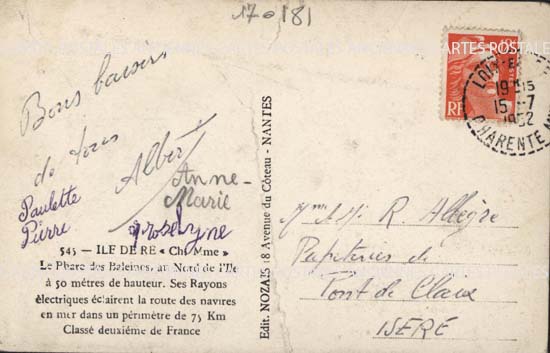 17 0 181
Bons baisers
de tous
Albert
Anne-
Marie
Paulette
Pierre
Roselyne
545 — ILE DE RE « Ch. Mme »
Le Phare des Baleines, au Nord de l'Ile
à 50 mètres de hauteur. Ses Rayons
électriques éclairent la route des navires
en mer dans un périmètre de 75 Km
Classé deuxième de France
Edit. NOZAIS 18 Avenue du Côteau - NANTES
RF
19 15
15 -7
1952
CHARENTE
R. Allègre
Papeteries de
Pont de Claix
ISERE
CARTES POSTALES